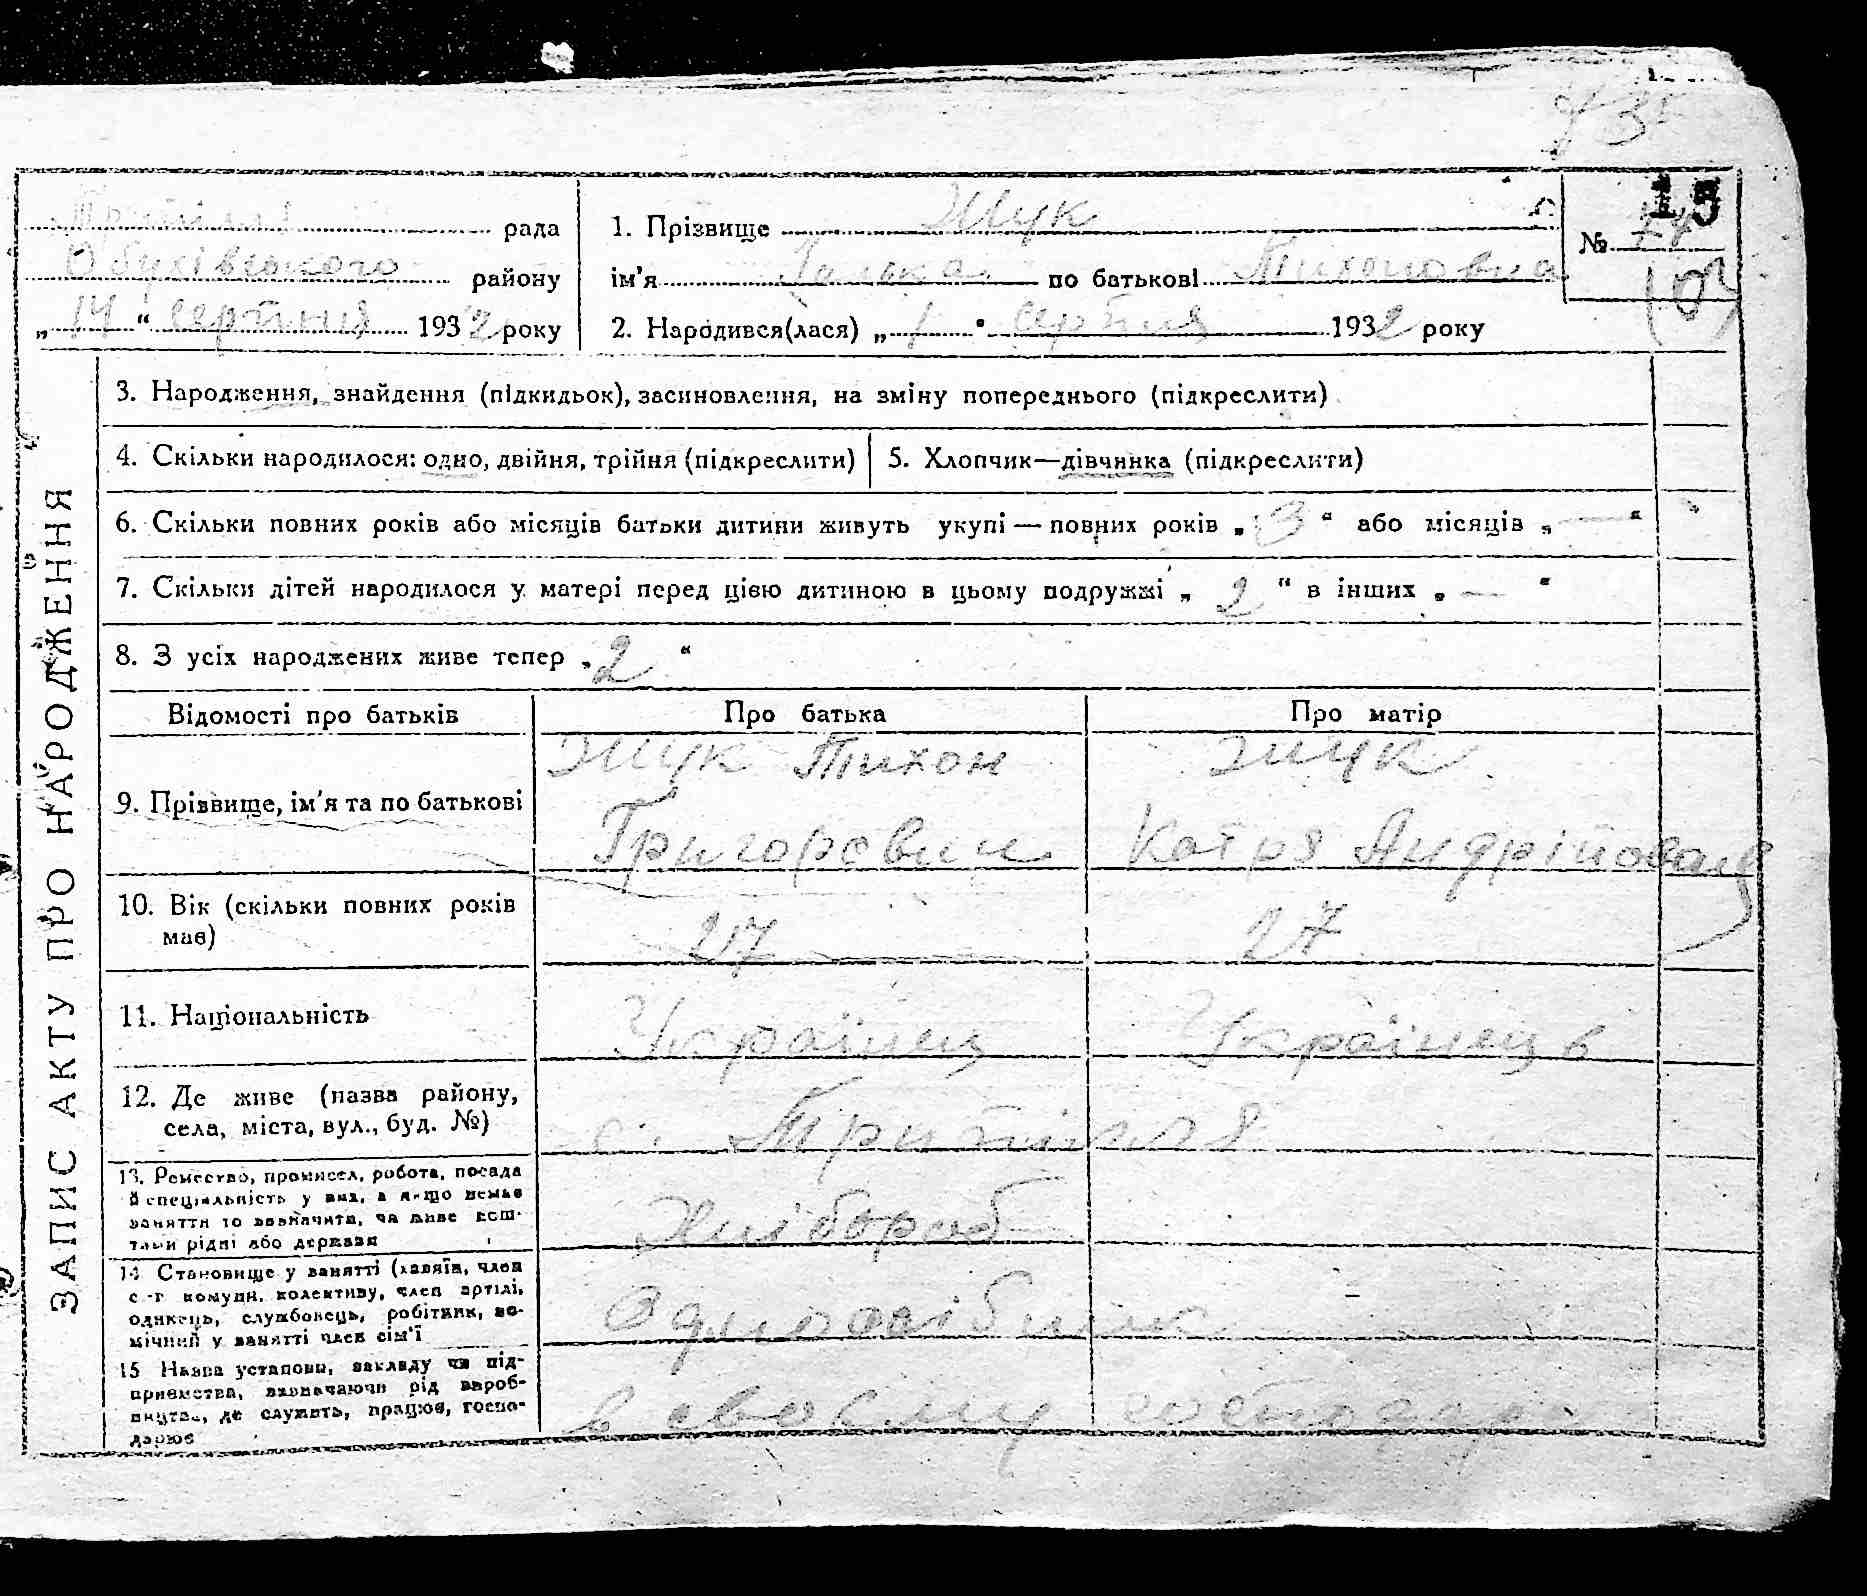 73
15
рада
1. Прізвище Жук
№
Обухівського району
ім'я Галька по батькові Тихоновна
„14“ серпня 1932 року
2. Народився(лася) „1“ серпня 1932 року
ЗАПИС АКТУ ПРО НАРОДЖЕННЯ
3. Народження, знайдення (підкидьок), засиновлення, на зміну попереднього (підкреслити)
4. Скільки народилося: одно, двійня, трійня (підкреслити)
5. Хлопчик—дівчинка (підкреслити)
6. Скільки повних років або місяців батьки дитини живуть укупі — повних років „3“ або місяців „—“
7. Скільки дітей народилося у матері перед цією дитиною в цьому подружжі „2“ в інших „—“
8. З усіх народжених живе тепер „2“
Відомості про батьків
Про батька
Про матір
9. Прізвище, ім'я та по батькові
Жук Тихон
Григорович
Жук
Катря Андрійовна
10. Вік (скільки повних років
має)
27
27
11. Національність
Українец
Українець
12. Де живе (назва району,
села, міста, вул., буд. №)
с. Трипілля
13. Ремество, промисел, робота, посада
й спеціяльність у них, а якщо немає
заняття то зазначити, чи живе кош-
тами рідні або держави
Хлібороб
14 Становище у занятті (хазяїн, член
с.-г комуни, колективу, член артілі,
одинець, службовець, робітник, по-
мічний у занятті член сім'ї
Одноосібник
15 Назва установи, закладу чи під-
приємства, зазначаючи рід вироб-
ництва, де служить, працює, госпо-
дарює
в своєму господарс